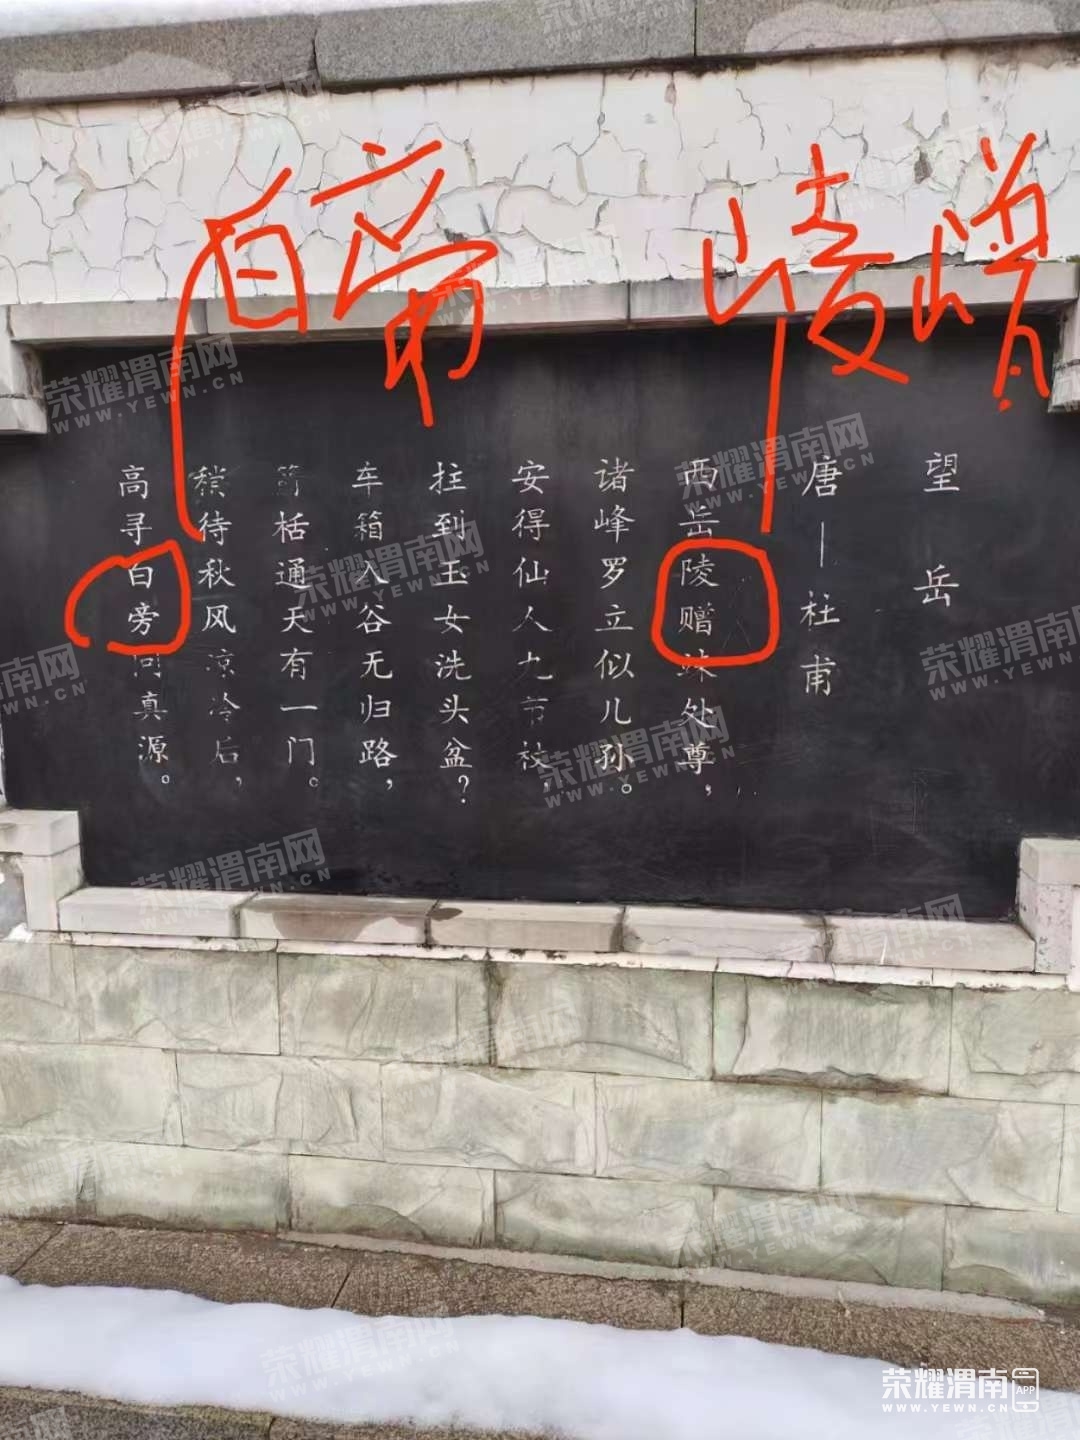 白帝
崚嶒
望岳
唐—杜甫
西岳陵赠竦处尊，
诸峰罗立似儿孙。
安得仙人九节杖，
拄到玉女洗头盆？
车箱入谷无归路，
箭栝通天有一门。
稍待秋风凉冷后，
高寻白旁问真源。
荣耀渭南网
WWW.YEWN.CN
荣耀渭南 APP
WWW.YEWN.CN